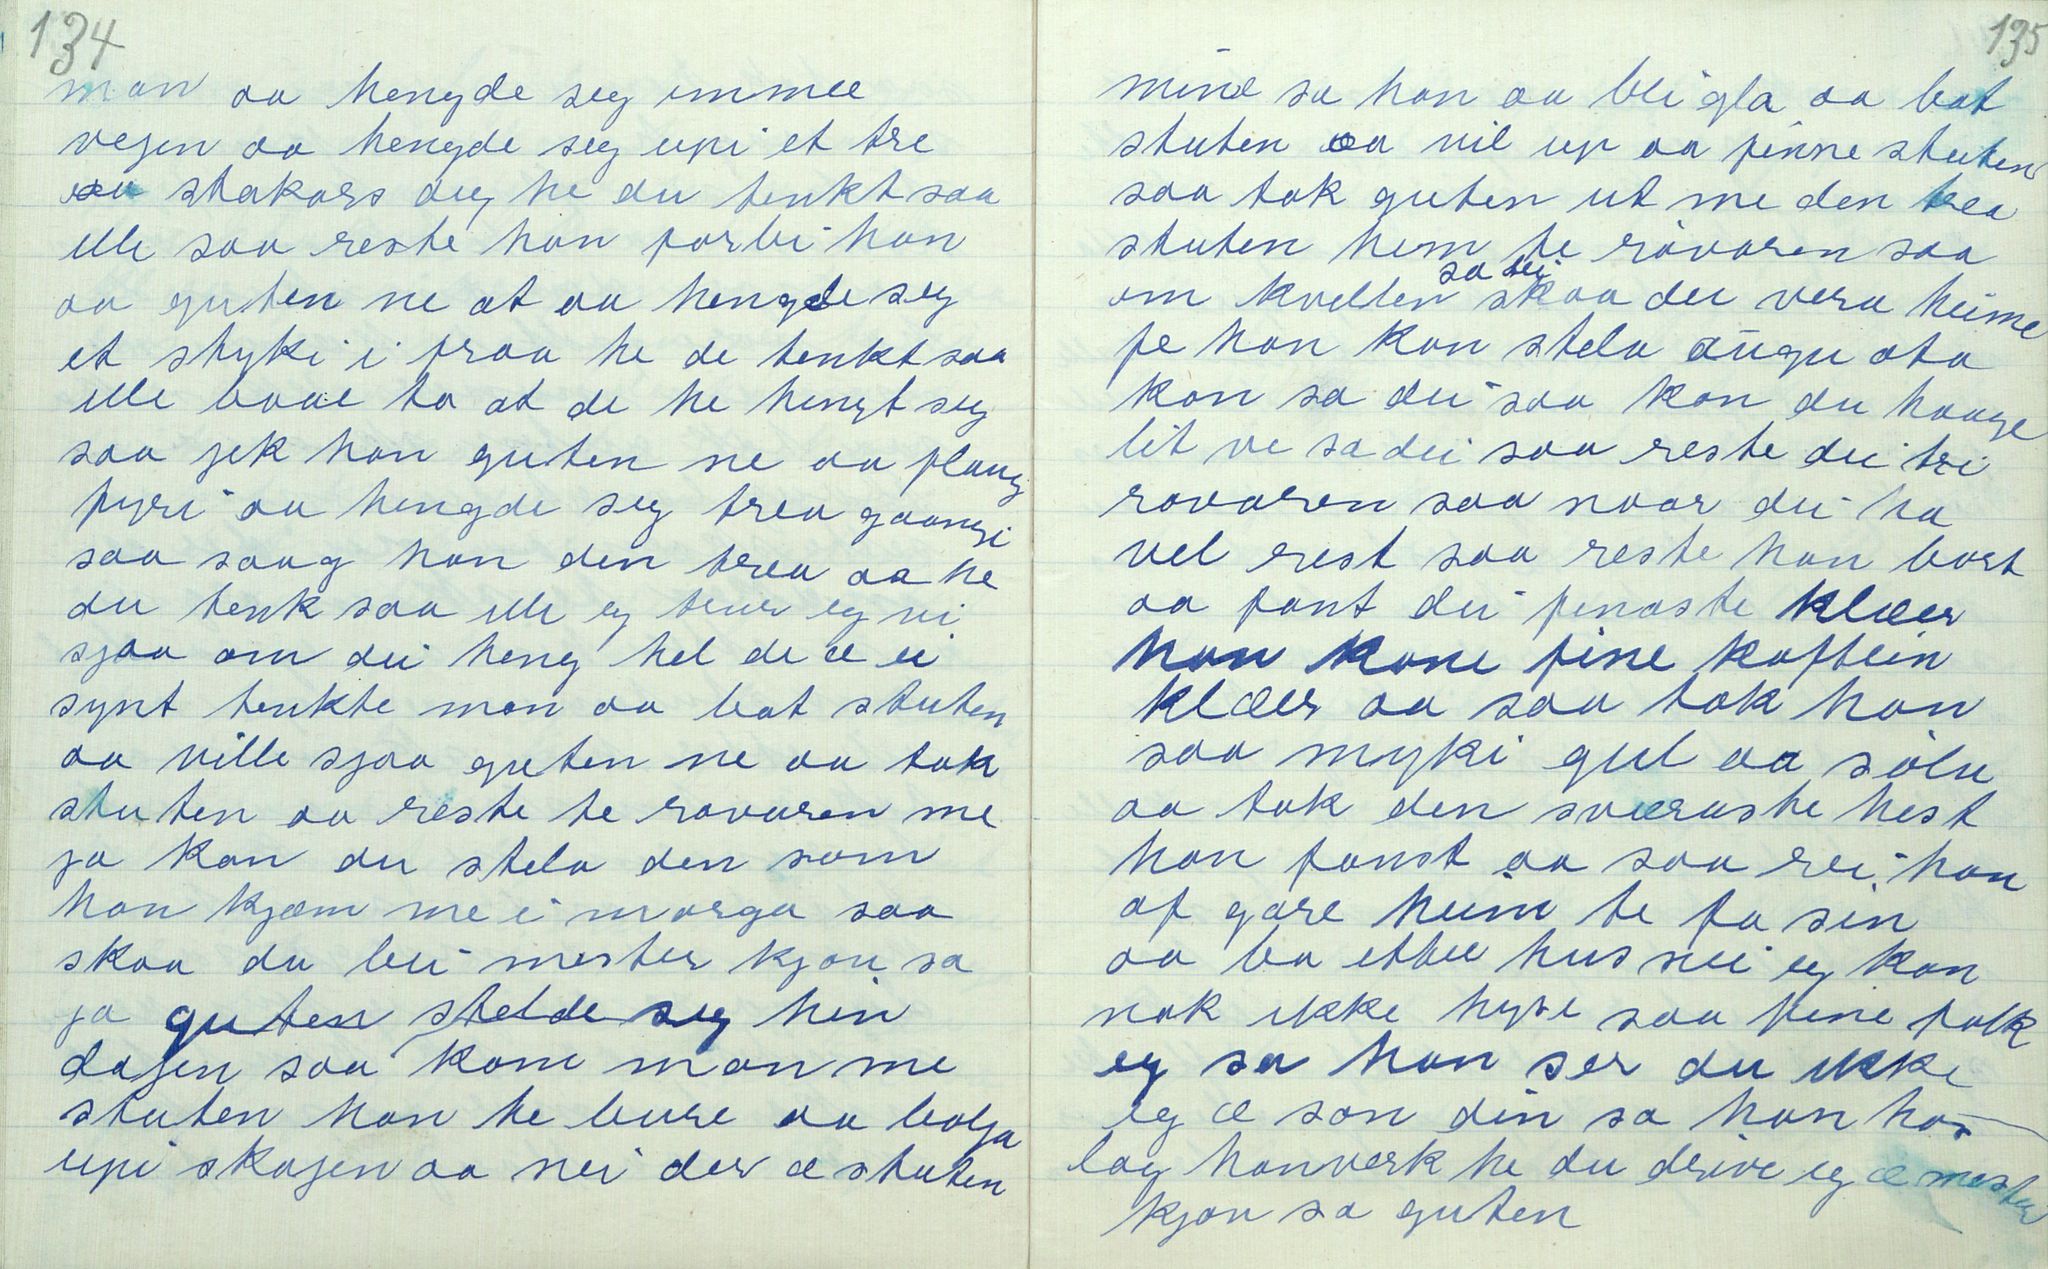 134
man aa hengde seg immee
vegen aa hengde seg upi et tre
aa stakars deg he du tenkt saa
ille saa reste han forbi han
aa guten ne at aa hengde seg
et styki i fraa he de tenkt saa
ille baae to at de he hengt seg
saa jek han guten ne aa flaug
fyri aa hengde seg trea gaangi
saa saag han den trea aa he
du tenk saa ille eg trur eg vi
sjaa om dei heng hel de æ ei
synt tenkte man aa bat stuten
aa ville sjaa guten ne aa tok
stuten aa reste te røvaren me
ja kan du stela den som
han kjæm me i morga saa
skaa du bli mester kjøu sa
ja guten stelde seg hin
dagen saa kom man me
stuten han he bure aa bølja
upi skogen aa nei der æ stuten
135
mine sa han aa blei gla aa bat
stuten aa vil up aa finne stuten
saa tok guten ut me den trea
stuten hem te røvaren saa
om kvellen sa dei skaa du vera heime
fe han kan stela augu ota
kon sa dei saa kan du haage
lit ve sa dei saa reste dei tri
røvaren saa naar dei ha
vel rest saa reste han bort
aa fant dei finaste klæer
han kone fine kaftein
klæer aa saa tok han
saa myki gul aa sølu
aa tok den sværaste hest
han fanst aa saa rei han
af gare heim te fa sin
aa ba etter hus nei eg kan
nok ikke hyse saa fine folk
eg sa han ser du ikke
eg æ son din sa han ho
lag hanverk he du drive eg æ mester
kjøu sa guten